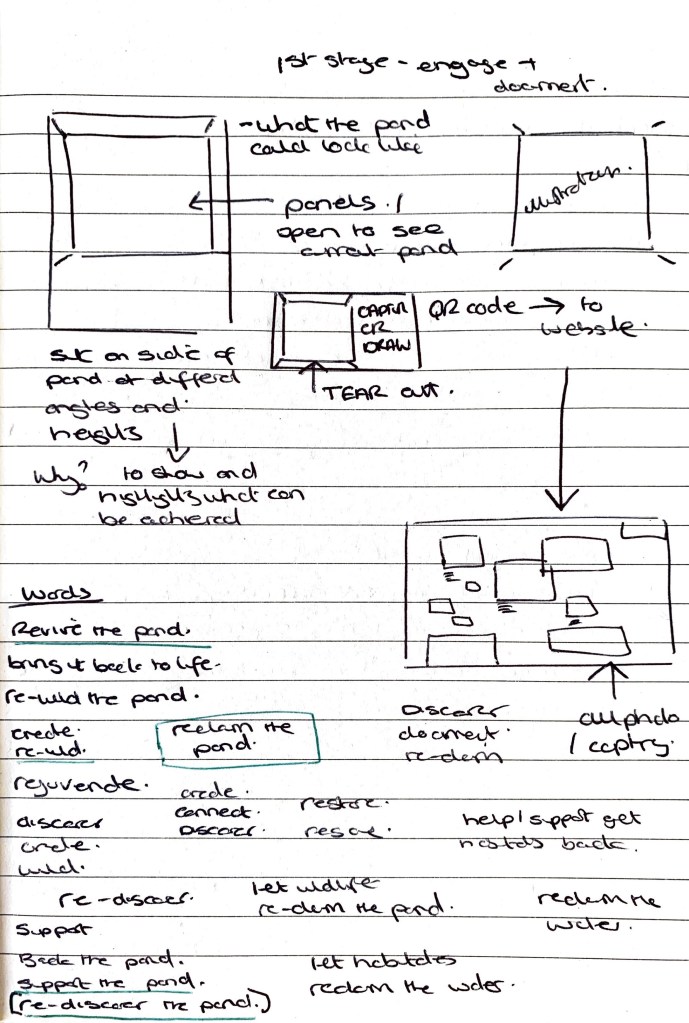 1st stage - engage +
document.
- what the pond
could look like
panels /
open to see
current pond
illustration.
CAPTUR
OR
DRAW
QR code → to
website.
TEAR out.
sit on side of
pond at different
angles and
heights
Why? to show and
highlights what can
be achieved
Words
Revive the pond.
bring it back to life.
re-wild the pond.
create.
re-wild.
reclaim the
pond.
Discover
document.
re-claim
all photo
/
rejuvenate.
create.
connect.
Discover.
restore.
rescue.
discover
create.
wild.
help/support get
habitats back.
re-discover.
let wildlife
re-claim the pond.
reclaim the
water.
Support
Back the pond.
support the pond.
(re-discover the pond.)
let habitats
reclaim the water.